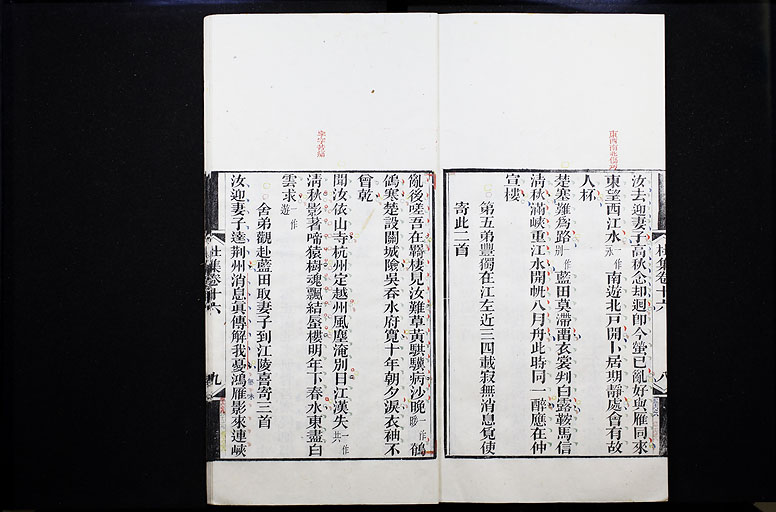 汝去迎妻子高秋念却迴即今螢已亂好與雁同來
東望西江水一作永南遊北戶開卜居期靜處會有故
人杯
楚塞難爲路一作別藍田莫滯留衣裳判白露鞍馬信
清秋滿峽重江水開帆八月舟此時同一醉應在仲
宣樓
第五弟豐獨在江左近三四載寂無消息覓使
寄此二首
杜集卷十六
八
亂後嗟吾在羇棲見汝難草黃騏驥病沙晚一作暖鶺
鴒寒楚設關城險吳吞水府寬十年朝夕淚衣袖不
曾乾
聞汝依山寺杭州定越州風塵淹別日江漢失一作共
清秋影著啼猿樹魂飄結蜃樓明年下春水東盡白
雲求一作遊
舍弟觀赴藍田取妻子到江陵喜寄三首
汝迎妻子達荊州消息真傳解我憂鴻雁影來連峽
杜集卷十六
九